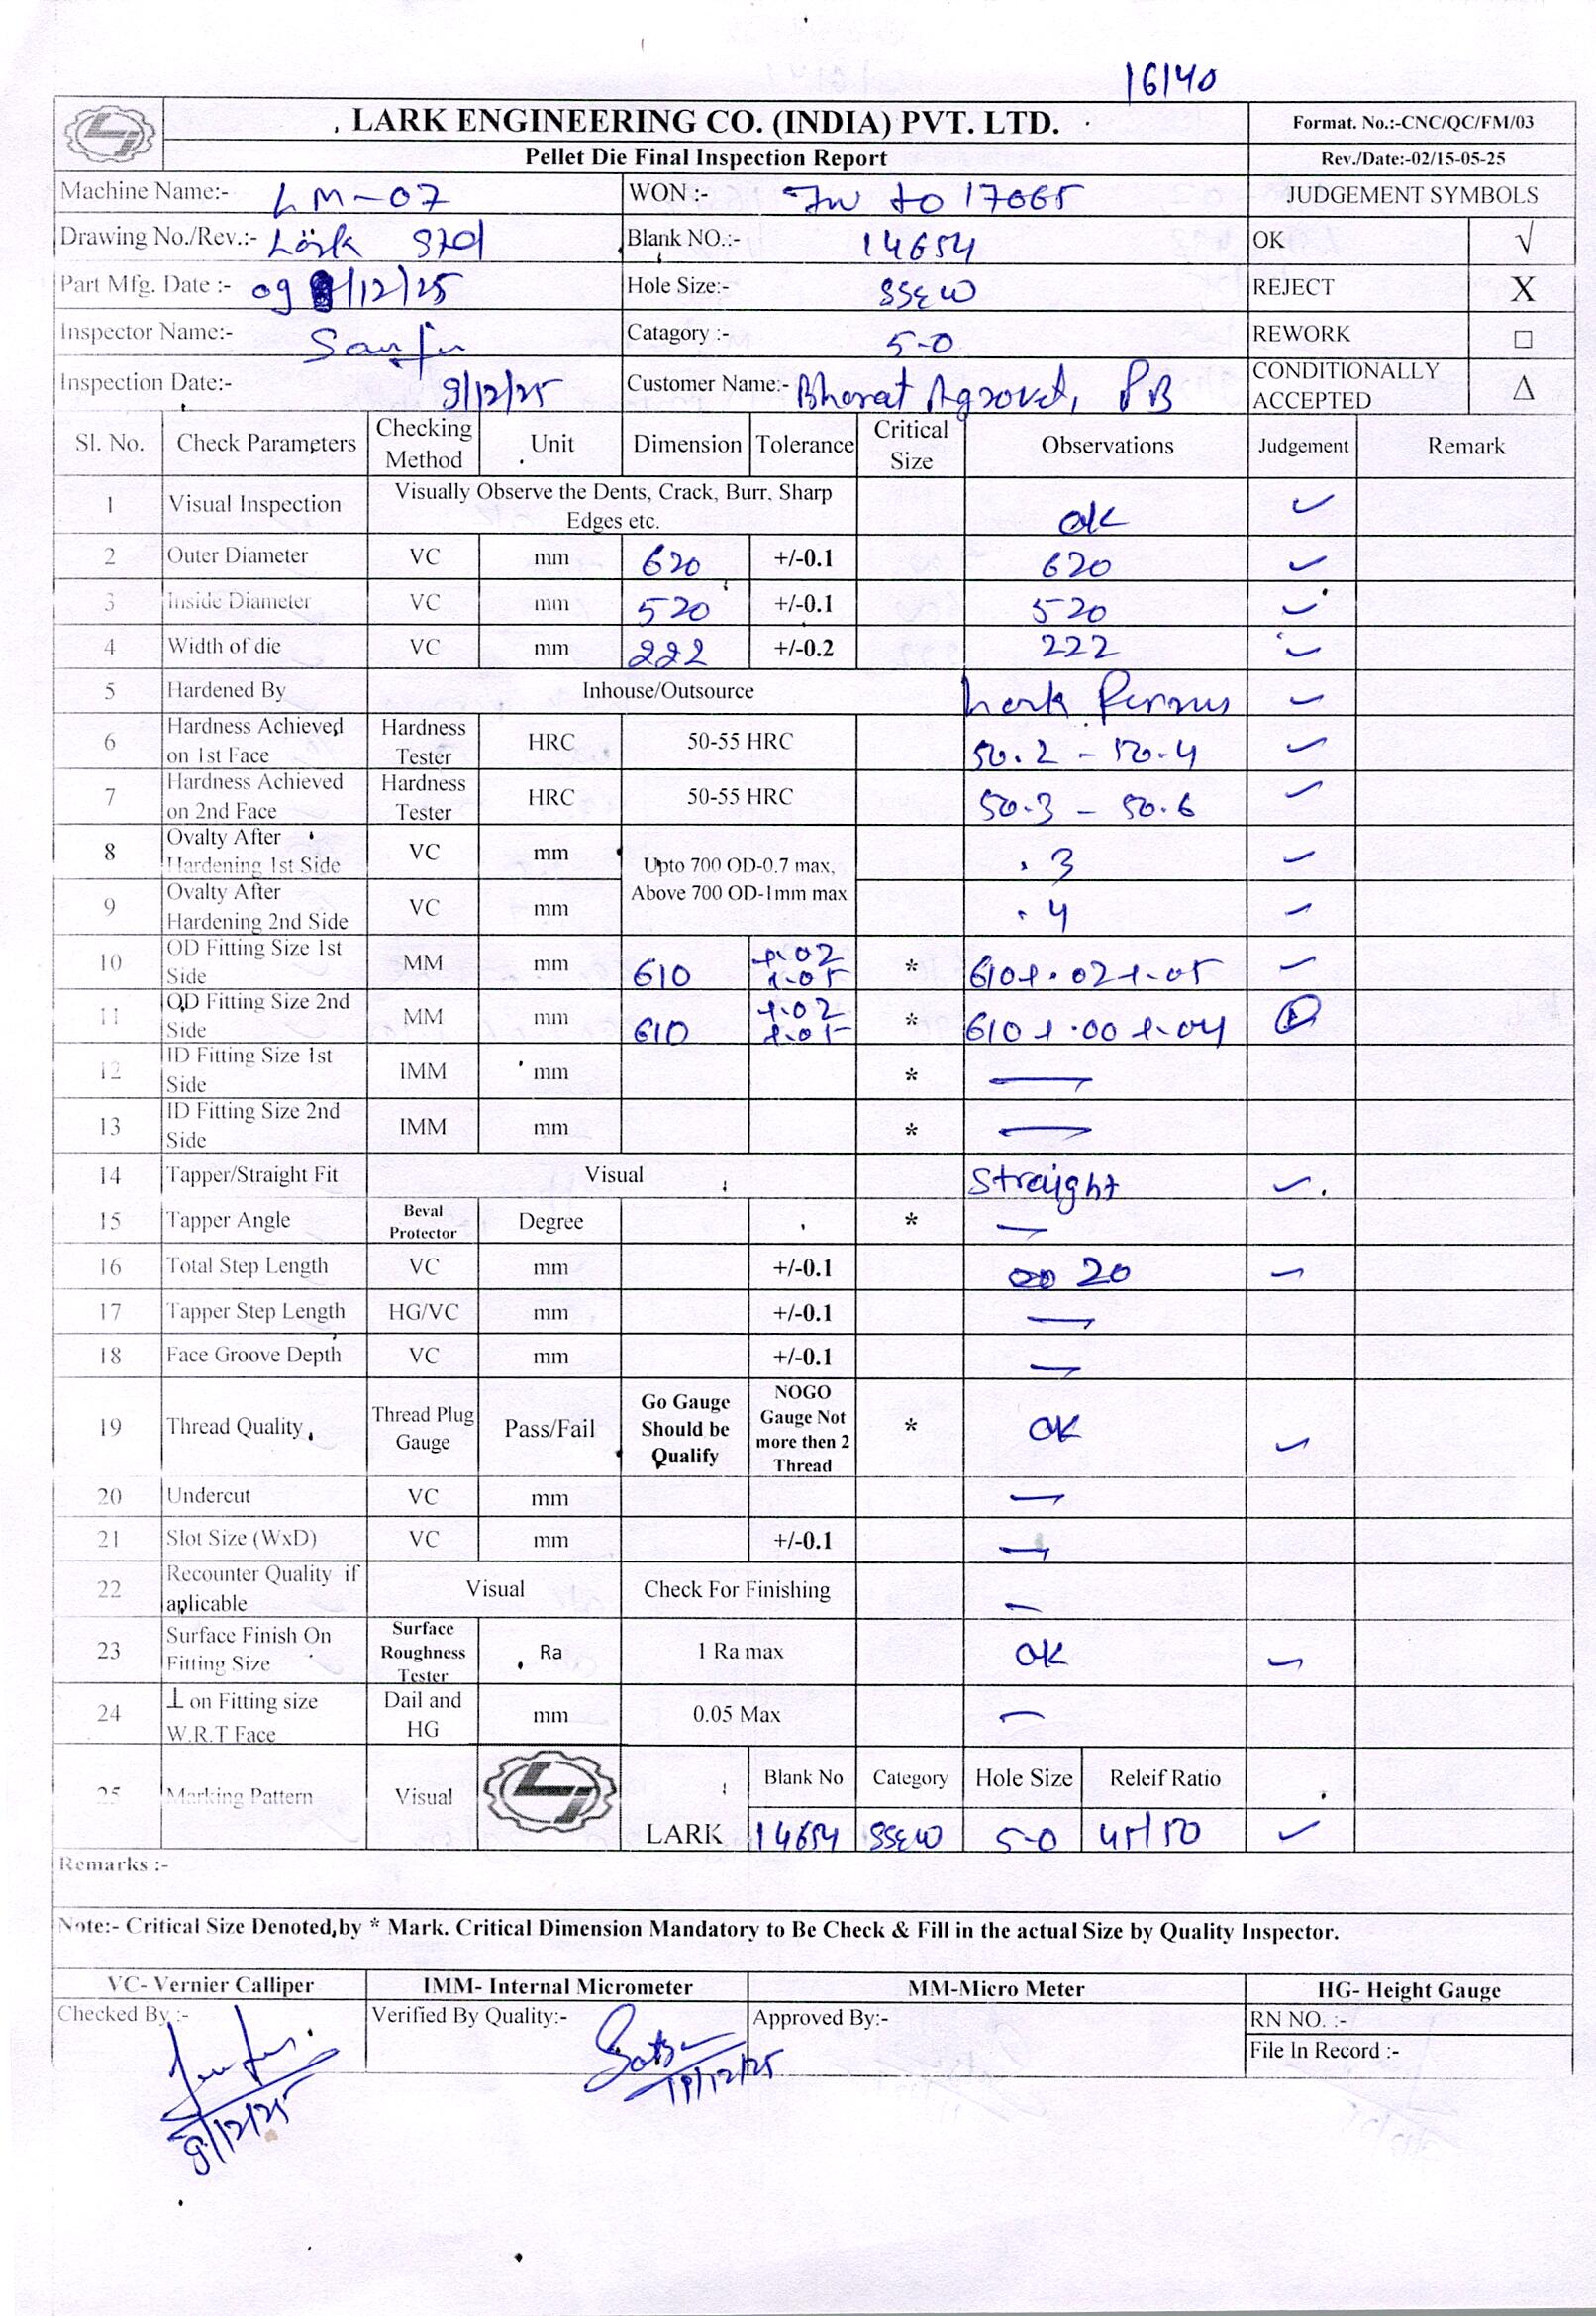 16140
LARK ENGINEERING CO. (INDIA) PVT. LTD.
Format. No.:-CNC/QC/FM/03
Pellet Die Final Inspection Report
Rev./Date:-02/15-05-25
Machine Name:- LM-07 WON :- to 17065 JUDGEMENT SYMBOLS
Drawing No./Rev.:- Lark std Blank NO.:- 14654 OK √
Part Mfg. Date :- 09/12/25 Hole Size:- SSEW REJECT X
Inspector Name:- Catagory :- 5.0 REWORK □
Inspection Date:- 9/12/25 Customer Name:- Bharat Agrovet, PB CONDITIONALLY ACCEPTED Δ
Sl. No. Check Parameters Checking Method Unit Dimension Tolerance Critical Size Observations Judgement Remark
1 Visual Inspection Visually Observe the Dents, Crack, Burr, Sharp Edges etc. ok ✓
2 Outer Diameter VC mm 620 +/-0.1 620 ✓
3 Inside Diameter VC mm 520 +/-0.1 520 ✓
4 Width of die VC mm 222 +/-0.2 222 ✓
5 Hardened By Inhouse/Outsource Lark ✓
6 Hardness Achieved on 1st Face Hardness Tester HRC 50-55 HRC 50.2 - 50.4 ✓
7 Hardness Achieved on 2nd Face Hardness Tester HRC 50-55 HRC 50.3 - 50.6 ✓
8 Ovalty After Hardening 1st Side VC mm Upto 700 OD-0.7 max, Above 700 OD-1mm max .3 ✓
9 Ovalty After Hardening 2nd Side VC mm .4 ✓
10 OD Fitting Size 1st Side MM mm 610 +.02 +.05 * 610+.02+.05 ✓
11 OD Fitting Size 2nd Side MM mm 610 +.02 +.05 * 610+.00+.04
12 ID Fitting Size 1st Side IMM mm * —
13 ID Fitting Size 2nd Side IMM mm * —
14 Tapper/Straight Fit Visual Straight ✓
15 Tapper Angle Beval Protector Degree * —
16 Total Step Length VC mm +/-0.1 20 ✓
17 Tapper Step Length HG/VC mm +/-0.1 —
18 Face Groove Depth VC mm +/-0.1 —
19 Thread Quality Thread Plug Gauge Pass/Fail Go Gauge Should be Qualify NOGO Gauge Not more then 2 Thread * OK ✓
20 Undercut VC mm —
21 Slot Size (WxD) VC mm +/-0.1 —
22 Recounter Quality if aplicable Visual Check For Finishing —
23 Surface Finish On Fitting Size Surface Roughness Tester Ra 1 Ra max OK ✓
24 ⊥ on Fitting size W.R.T Face Dail and HG mm 0.05 Max —
25 Marking Pattern Visual LARK Blank No Category Hole Size Releif Ratio
14654 SSEW 5.0 45/50 ✓
Remarks :-
Note:- Critical Size Denoted,by * Mark. Critical Dimension Mandatory to Be Check & Fill in the actual Size by Quality Inspector.
VC- Vernier Calliper IMM- Internal Micrometer MM-Micro Meter HG- Height Gauge
Checked By :- Verified By Quality:- Approved By:- RN NO. :-
File In Record :-
9/12/25